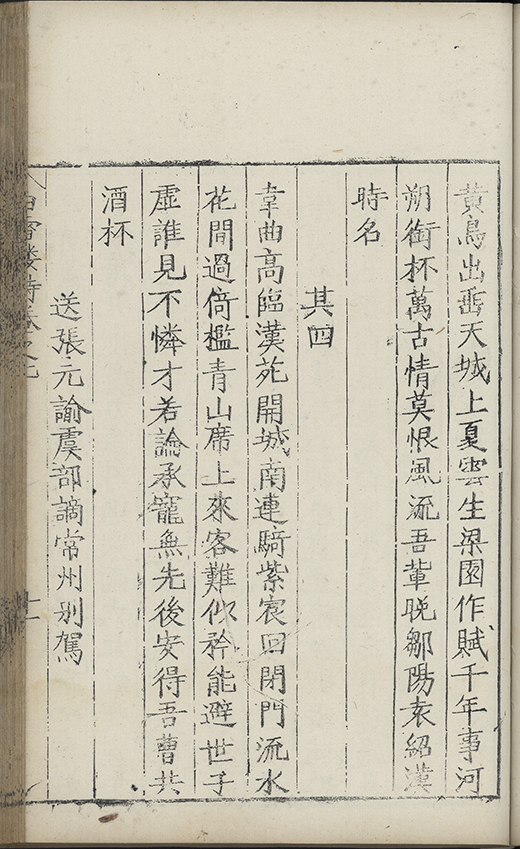 黃鳥出垂天城上夏雲生梁園作賦千年事河
朔銜杯萬古情莫恨風流吾輩晚鄒陽袁紹漢
時名
其四
韋曲高臨漢苑開城南連騎紫宸回閉門流水
花間過倚檻青山席上來客難似矜能避世子
虛誰見不憐才若論承寵無先後安得吾曹共
酒杯
送張元諭虞部謫常州別駕
白雪樓詩卷之